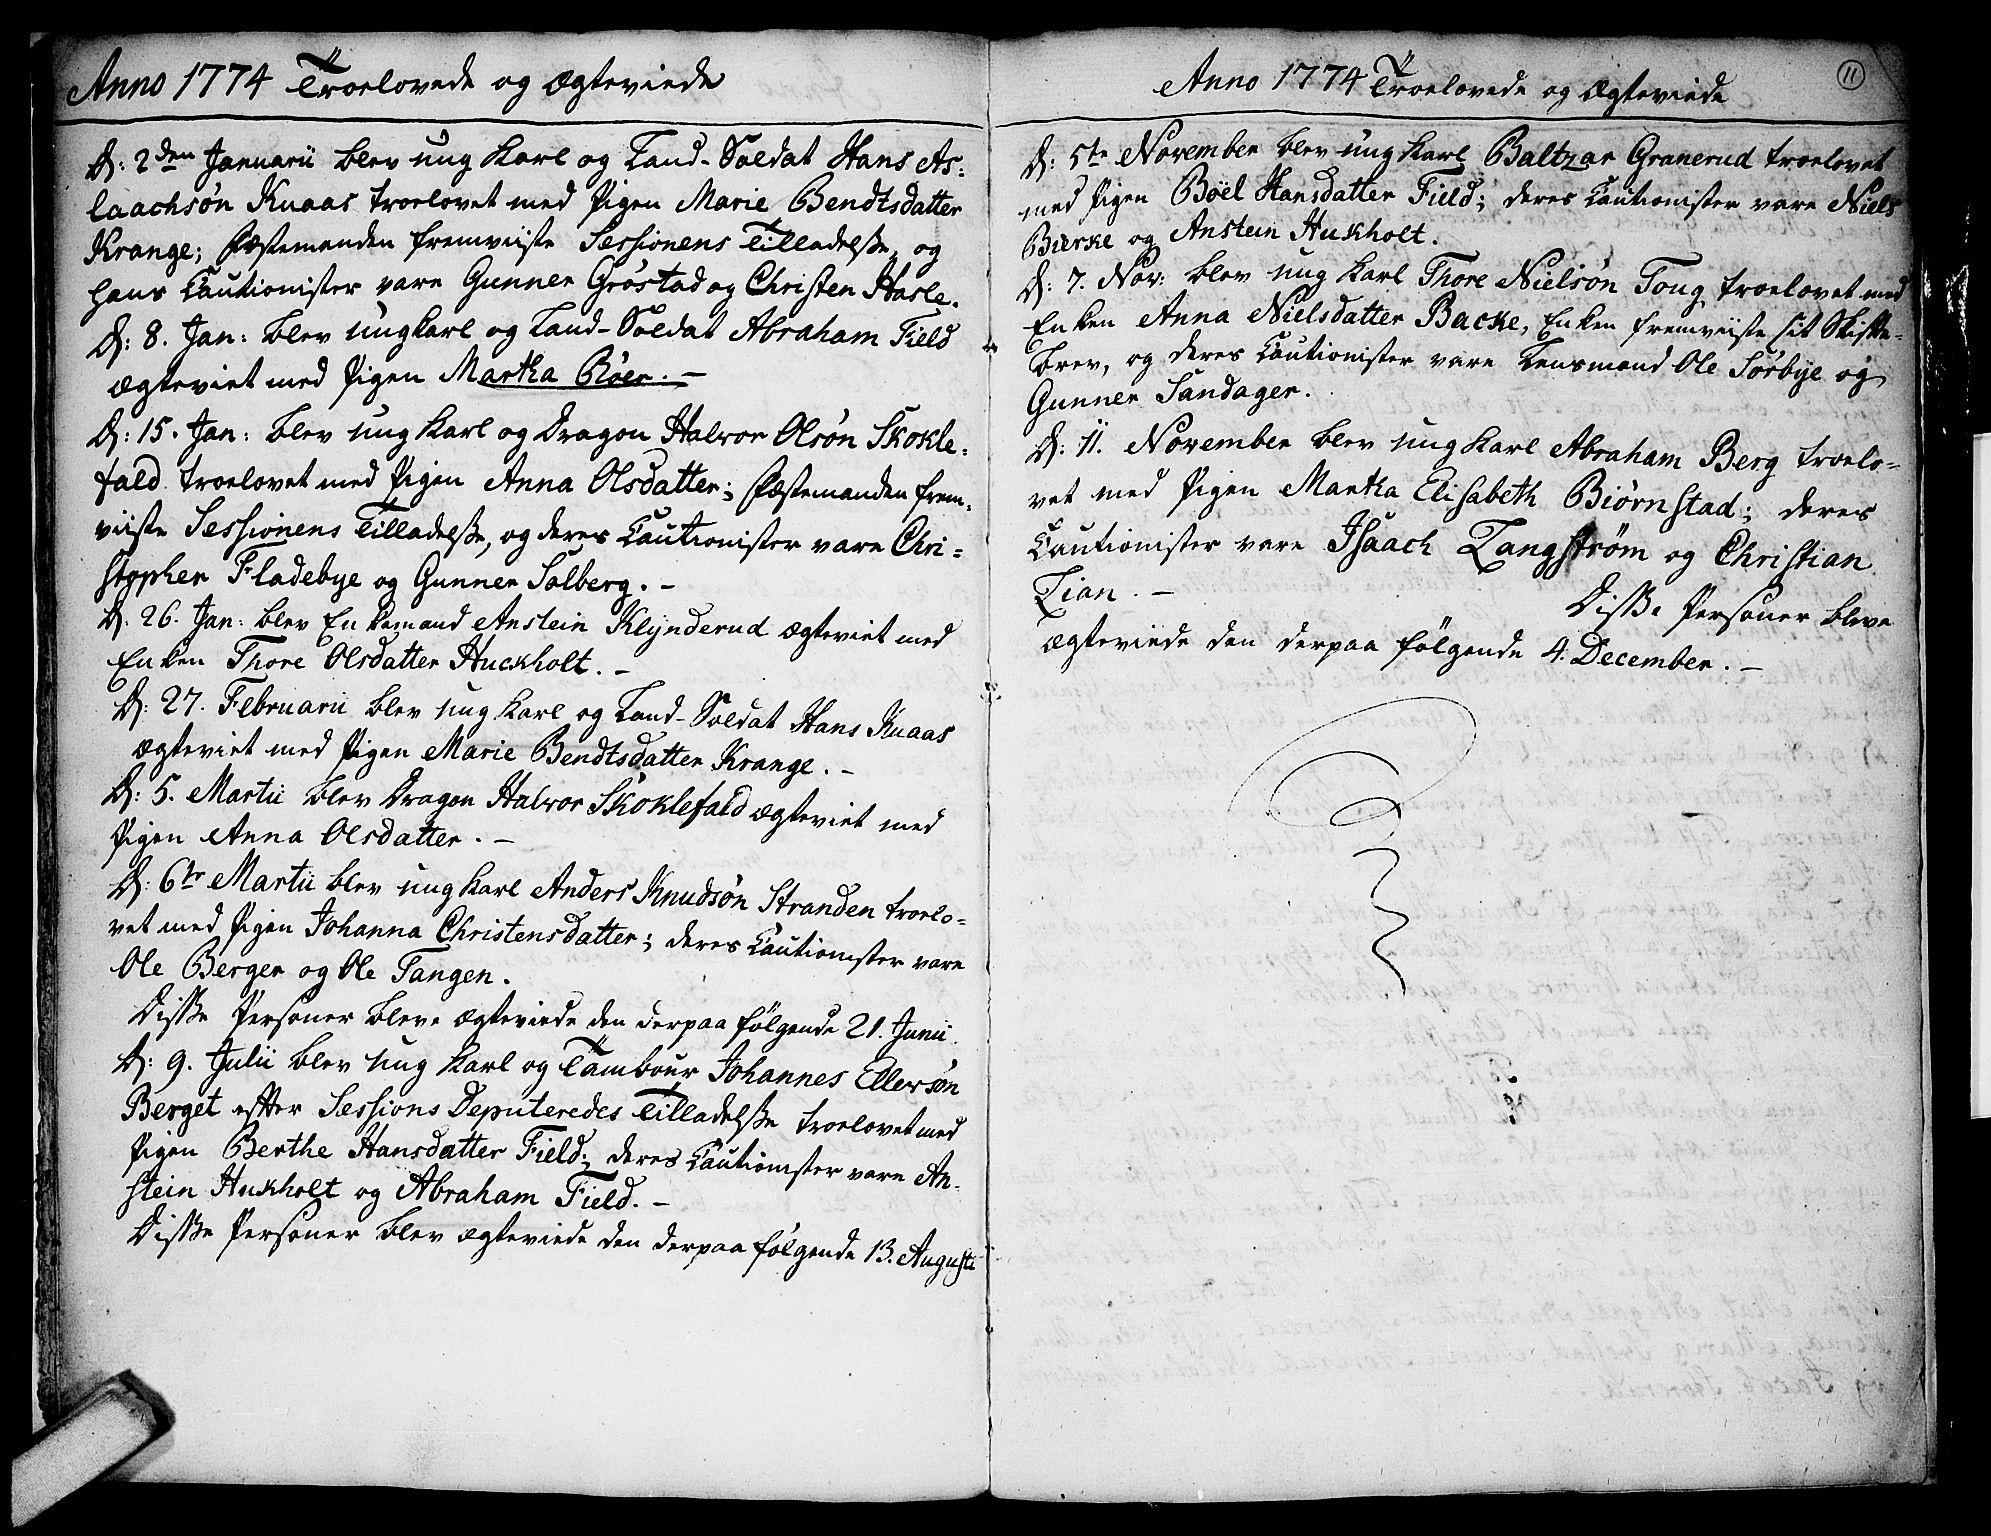 Anno 1774 Troelovede og Ægteviede
D: 2den Januarii blev ung Karl og Land-Soldat Hans As-
laachsøn Knaas troelovet med Pigen Marie Bendtsdatter
Krange; Fæstemanden fremviiste Sessionens Tilladelsse, og
hans Cautionister vare Gunner Grøstad og Christen Hasle.
D: 8. Jan: blev ung Karl og Land-Soldat Abraham Field
ægteviet med Pigen Martha Røer. –
D: 15. Jan: blev ung Karl og Dragon Halvor Olsøn Skokle-
fald troelovet med Pigen Anna Olsdatter; Fæstemanden frem-
viiste Sessionens Tilladelsse, og deres Cautionister vare Chri-
stopher Fladebye og Gunner Solberg. –
D: 26. Jan: blev Enkemand Anstein Klynderud ægteviet med
Enken Thore Olsdatter Huckholt. –
D: 27. Februarii blev ung Karl og Land-Soldat Hans Knaas
ægteviet med Pigen Marie Bendtsdatter Krange. –
D: 5. Martii blev Dragon Halvor Skoklefald ægteviet med
Pigen Anna Olsdatter. –
D: 6te Martii blev ung Karl Anders Knudsøn Stranden troelo-
vet med Pigen Johanna Christensdatter; deres Cautionister vare
Ole Berger og Ole Tangen.
Disse Personer bleve ægteviede den derpaa følgende 21. Junii.
D: 9. Julii blev ung Karl og Tambour Johannes Ellevsøn
Berget efter Sessions Deputeredes Tilladelsse troelovet med
Pigen Berthe Hansdatter Field; deres Cautionister vare An-
stein Hukholt og Abraham Field. –
Disse Personer blev ægteviede den derpaa følgende 13. Augusti
Anno 1774 Troelovede og Ægteviede
11
D: 5te November blev ung Karl Baltzar Granerud troelovet
med Pigen Boël Hansdatter Field; deres Cautionister vare Niels
Bierke og Anstein Hukholt.
D: 7. Nov: blev ung Karl Thore Nielsøn Toug troelovet med
Enken Anna Nielsdatter Backe, Enken fremviiste sit Skifte-
brev, og deres Cautionister vare Lensmand Ole Sørbye og
Gunner Sandager.
D: 11. November blev ung Karl Abraham Berg troelo-
vet med Pigen Martha Elisabeth Biørnstad; deres
Cautionister vare Isaach Langstrøm og Christian
Lian. –
Disse Personer bleve
ægteviede den derpaa følgende 4. December. –